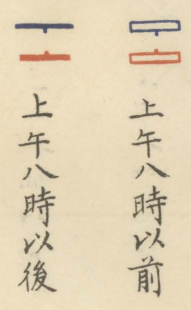 上午八時以前
上午八時以後